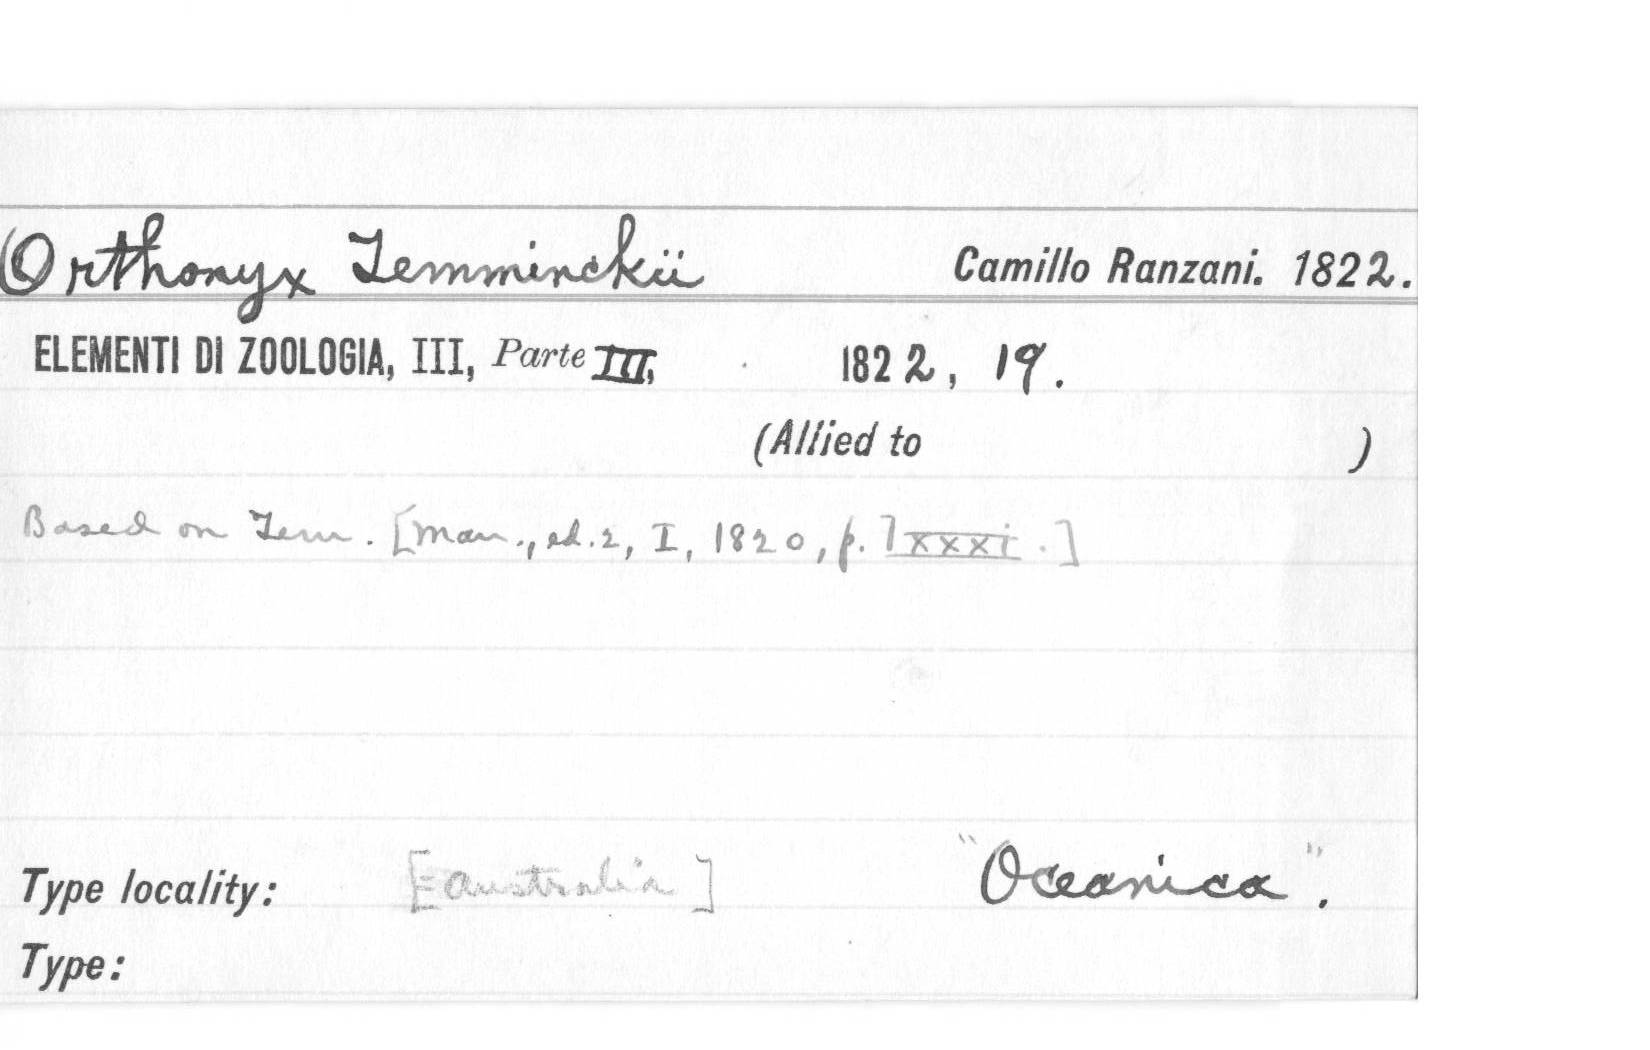 Orthonyx Temminckii Camillo Ranzani. 1822.
ELEMENTI DI ZOOLOGIA, III, Parte III, 1822, 19.
(Allied to )
Based on Tem. [Man., ed. 2, I, 1820, p. lxxxi.]
Type locality: [= Australia] "Oceanica".
Type: